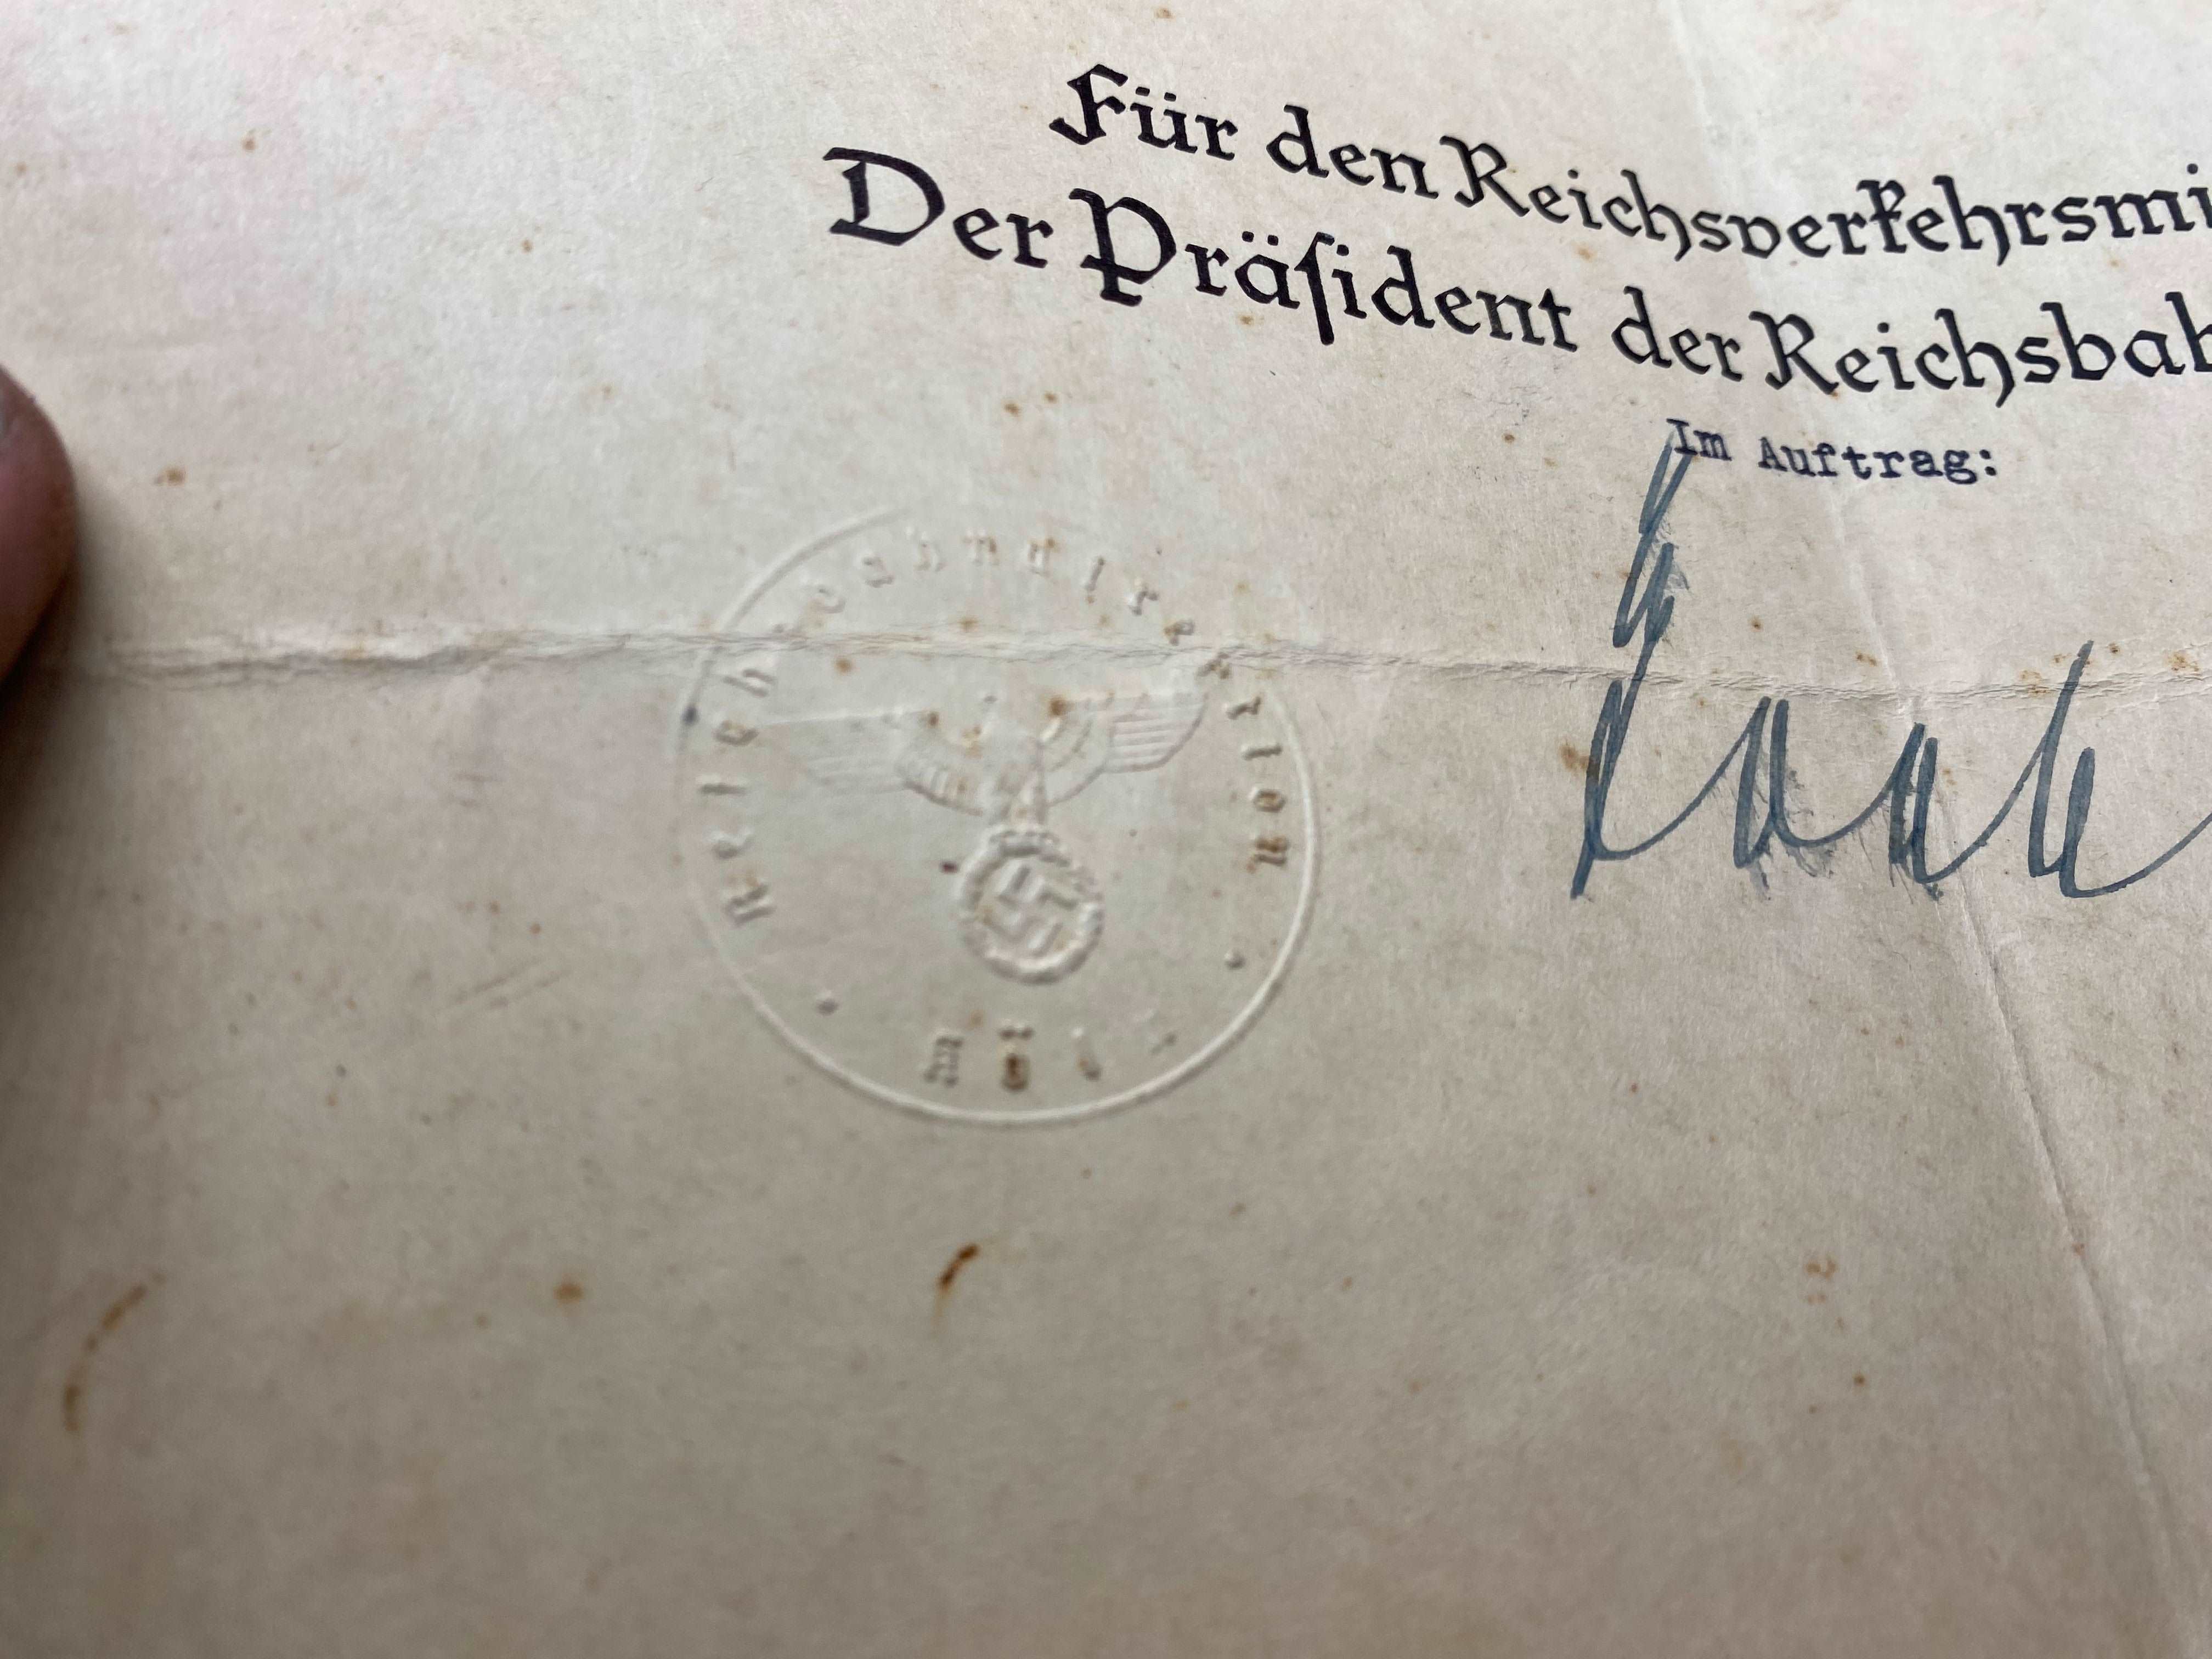 Für den Reichsverkehrsmi
Der Präſident der Reichsbah
Im Auftrag:
Reichsbahndirektion